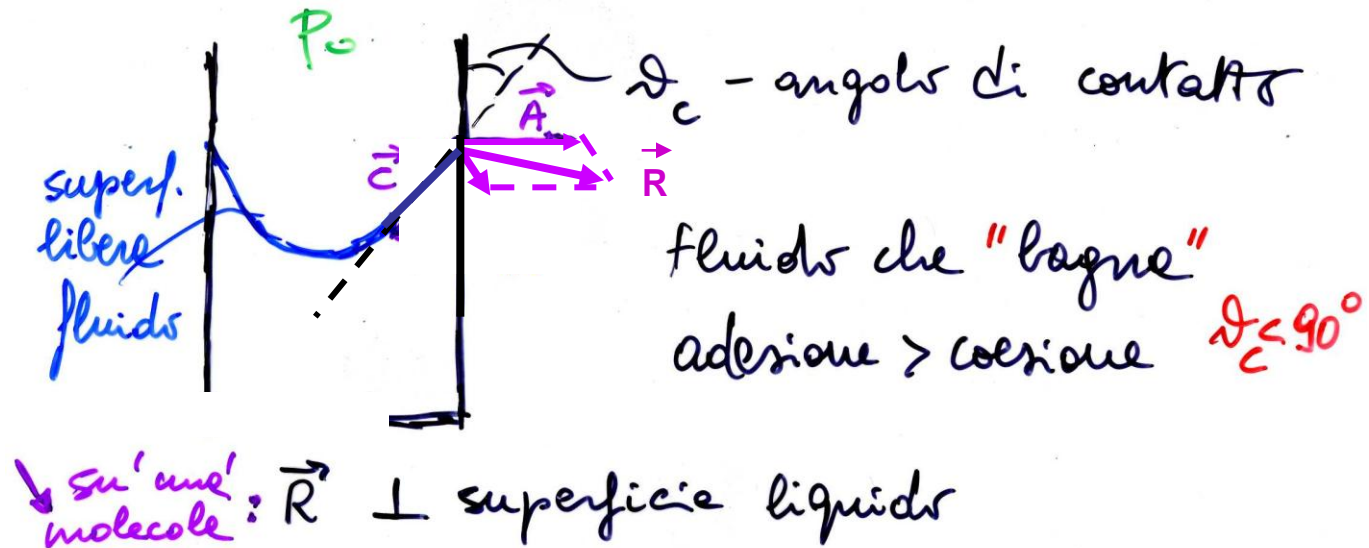 P₀
ϑc - angolo di contatto
A
C
R
superf.
libera
fluido
fluido che "bagna"
adesione > coesione ϑc<90°
su' una'
molecole : R ⊥ superficie liquido